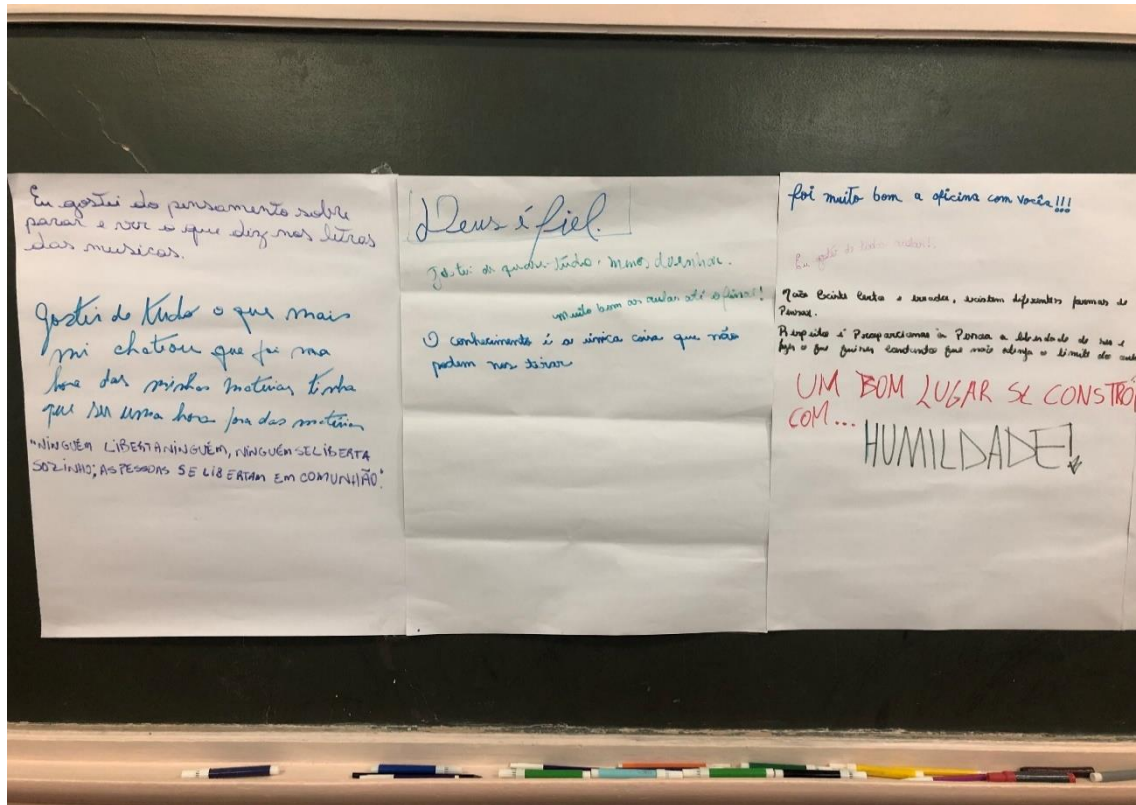 Eu gostei do pensamento sobre
parar e ver o que diz nas letras
das musicas.
gostei de tudo o que mais
mi chateou que foi uma
hora das minhas materias tinha
que ser uma hora fora das materias
"NINGUÉM LIBERTA NINGUÉM, NINGUÉM SE LIBERTA
SOZINHO; AS PESSOAS SE LIBERTAM EM COMUNHÃO".
Deus é fiel.
Gostei de quase tudo, menos desenhar.
muito bom as aulas até o final!
O conhecimento é a única coisa que não
podem nos tirar
foi muito bom a oficina com vocês!!!
Eu gostei de
Não existe certos e errados, existem diferentes formas de
Pensar.
Respeito é a liberdade de
o que quiser contando que não o limite do
UM BOM LUGAR SE CONSTRÓ
COM...
HUMILDADE!